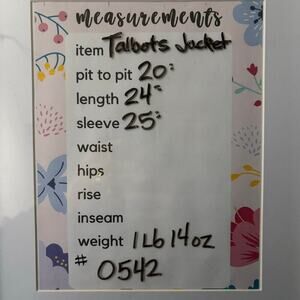 measurements
item Talbots Jacket
pit to pit 20"
length 24"
sleeve 25"
waist
hips
rise
inseam
weight 1 Lb 14 oz
# 0542